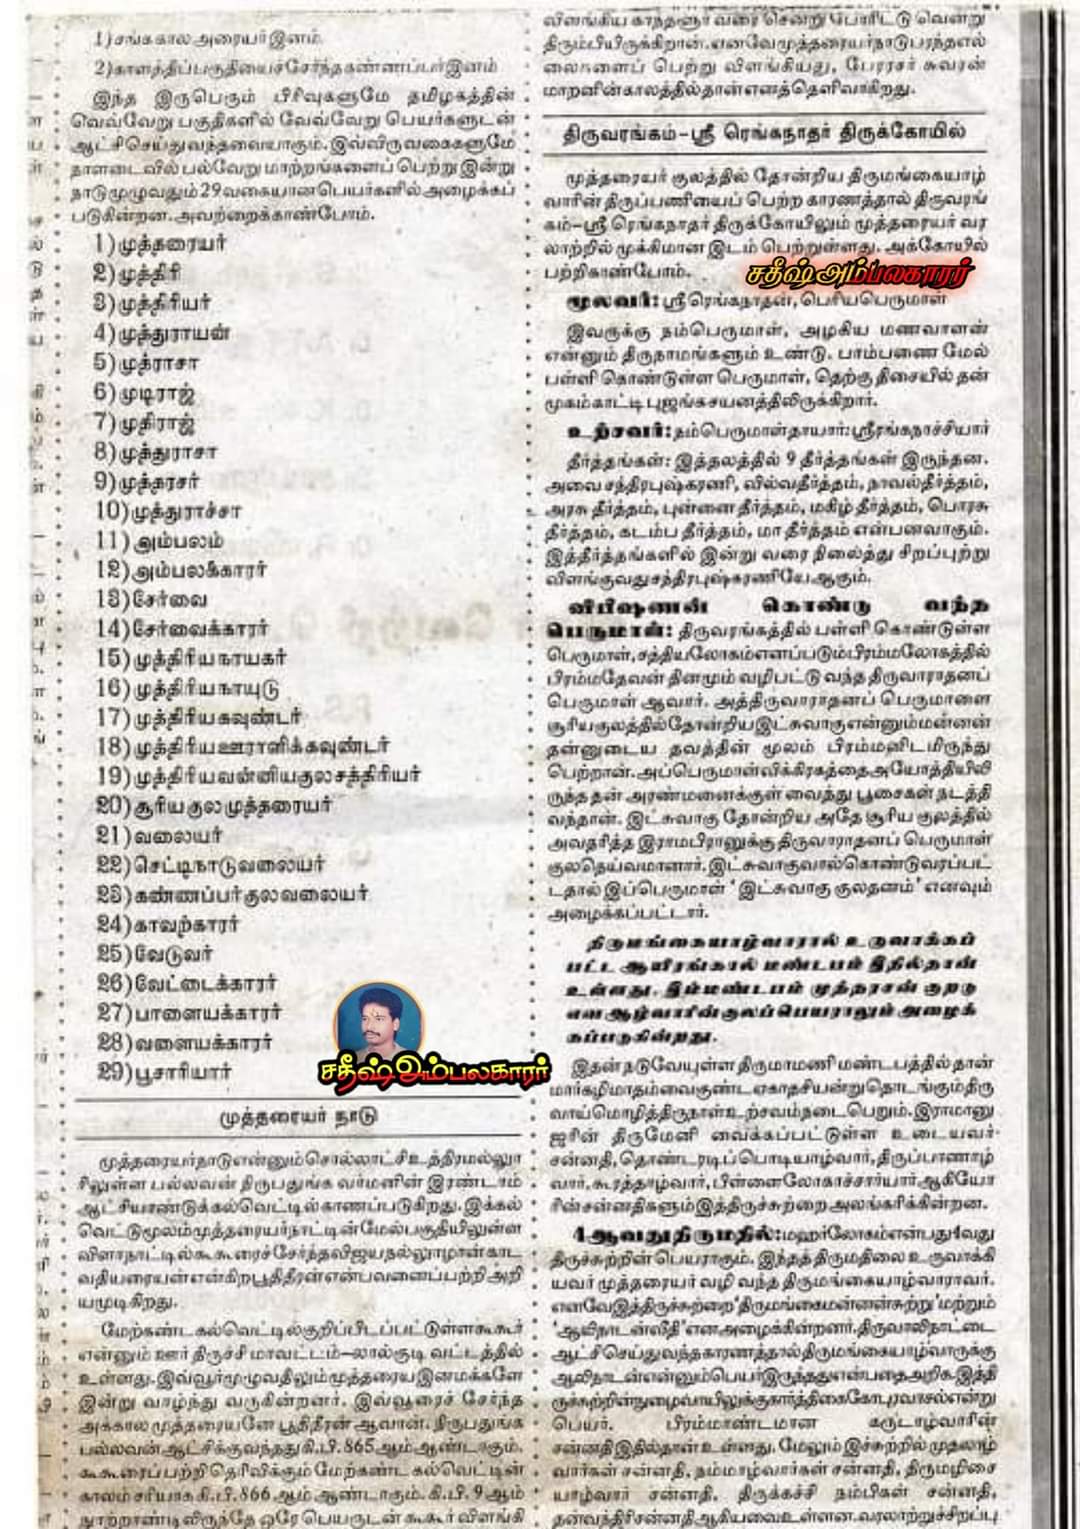 1) சங்ககால அரையர் இனம்.
2) காளத்திப்பகுதியைச் சேர்ந்த கண்ணப்பர் இனம்
இந்த இருபெரும் பிரிவுகளுமே தமிழகத்தின்
வெவ்வேறு பகுதிகளில் வேவ்வேறு பெயர்களுடன்
ஆட்சிசெய்துவந்தவையாகும். இவ்விருவகைகளுமே
நாளடைவில் பல்வேறு மாற்றங்களைப் பெற்று இன்று
நாடுமுழுவதும் 29 வகையான பெயர்களில் அழைக்கப்
படுகின்றன. அவற்றைக்காண்போம்.
1) முத்தரையர்
2) முத்திரி
3) முத்திரியர்
4) முத்துராயன்
5) முத்ராசா
6) முடிராஜ்
7) முதிராஜ்
8) முத்துராசா
9) முத்தரசர்
10) முத்துராச்சா
11) அம்பலம்
12) அம்பலக்காரர்
13) சேர்வை
14) சேர்வைக்காரர்
15) முத்திரிய நாயகர்
16) முத்திரிய நாயுடு
17) முத்திரிய கவுண்டர்
18) முத்திரிய ஊராளிக்கவுண்டர்
19) முத்திரிய வன்னியகுல சத்திரியர்
20) சூரிய குல முத்தரையர்
21) வலையர்
22) செட்டிநாடு வலையர்
23) கண்ணப்பர் குல வலையர்
24) காவற்காரர்
25) வேடுவர்
26) வேட்டைக்காரர்
27) பாளையக்காரர்
28) வளையக்காரர்
29) பூசாரியார்
சதீஷ் அம்பலகாரர்
முத்தரையர் நாடு
முத்தரையர்நாடு என்னும் சொல்லாட்சி உத்திரமல்லூ
ரிலுள்ள பல்லவன் நிருபதுங்க வர்மனின் இரண்டாம்
ஆட்சியாண்டுக்கல்வெட்டில் காணப்படுகிறது. இக்கல்
வெட்டுமூலம் முத்தரையர்நாட்டின் மேல்பகுதியிலுள்ள
விளாநாட்டில் கூகூரைச் சேர்ந்த விஜயநல்லூழான் காட
வதியரையன் என்கிற பூதிதீரன் என்பவனைப்பற்றி அறி
யமுடிகிறது.
மேற்கண்ட கல்வெட்டில் குறிப்பிடப்பட்டுள்ள கூகூர்
என்னும் ஊர் திருச்சி மாவட்டம்–லால்குடி வட்டத்தில்
உள்ளது. இவ்வூர்முழுவதிலும் முத்தரைய இனமக்களே
இன்று வாழ்ந்து வருகின்றனர். இவ்வூரைச் சேர்ந்த
அக்கால முத்தரையனே பூதிதீரன் ஆவான். நிருபதுங்க
பல்லவன் ஆட்சிக்குவந்தது கி.பி. 865 ஆம் ஆண்டாகும்.
கூகூரைப் பற்றி தெரிவிக்கும் மேற்கண்ட கல்வெட்டின்
காலம் சரியாக கி.பி. 866 ஆம் ஆண்டாகும். கி.பி. 9 ஆம்
நூற்றாண்டிலிருந்தே ஒரே பெயருடன் கூகூர் விளங்கி
விளங்கிய காந்தளூர் வரை சென்று போரிட்டு வென்று
திரும்பியிருக்கிறான். எனவே முத்தரையர்நாடு பரந்த எல்
லைகளைப் பெற்று விளங்கியது, பேரரசர் சுவரன்
மாறனின் காலத்தில்தான் எனத்தெளிவாகிறது.
திருவரங்கம்–ஸ்ரீ ரெங்கநாதர் திருக்கோயில்
முத்தரையர் குலத்தில் தோன்றிய திருமங்கையாழ்
வாரின் திருப்பணியைப் பெற்ற காரணத்தால் திருவரங்
கம்–ஸ்ரீ ரெங்கநாதர் திருக்கோயிலும் முத்தரையர் வர
லாற்றில் முக்கிமான இடம் பெற்றுள்ளது. அக்கோயில்
பற்றிகாண்போம்.
சதீஷ் அம்பலகாரர்
மூலவர்: ஸ்ரீ ரெங்கநாதன், பெரியபெருமாள்
இவருக்கு நம்பெருமாள், அழகிய மணவாளன்
என்னும் திருநாமங்களும் உண்டு. பாம்பணை மேல்
பள்ளி கொண்டுள்ள பெருமாள், தெற்கு திசையில் தன்
முகம்காட்டி புஜங்கசயனத்திலிருக்கிறார்.
உற்சவர்: நம்பெருமாள் தாயார்: ஸ்ரீரங்கநாச்சியார்
தீர்த்தங்கள்: இத்தலத்தில் 9 தீர்த்தங்கள் இருந்தன.
அவை சந்திரபுஷ்கரணி, வில்வதீர்த்தம், நாவல்தீர்த்தம்,
அரசு தீர்த்தம், புன்னை தீர்த்தம், மகிழ் தீர்த்தம், பொரசு
தீர்த்தம், கடம்ப தீர்த்தம், மா தீர்த்தம் என்பனவாகும்.
இத்தீர்த்தங்களில் இன்று வரை நிலைத்து சிறப்புற்று
விளங்குவது சந்திரபுஷ்கரணியே ஆகும்.
விபீஷணன் கொண்டு வந்த
பெருமாள்: திருவரங்கத்தில் பள்ளி கொண்டுள்ள
பெருமாள், சத்தியலோகம் எனப்படும் பிரம்மலோகத்தில்
பிரம்மதேவன் தினமும் வழிபட்டு வந்த திருவாராதனப்
பெருமாள் ஆவார். அத்திருவாராதனப் பெருமாளை
சூரியகுலத்தில் தோன்றிய இட்சுவாகு என்னும் மன்னன்
தன்னுடைய தவத்தின் மூலம் பிரம்மனிடமிருந்து
பெற்றான். அப்பெருமாள் விக்கிரகத்தை அயோத்தியிலி
ருந்த தன் அரண்மனைக்குள் வைத்து பூசைகள் நடத்தி
வந்தான். இட்சுவாகு தோன்றிய அதே சூரிய குலத்தில்
அவதரித்த இராமபிரானுக்கு திருவாராதனப் பெருமாள்
குலதெய்வமானார். இட்சுவாகுவால் கொண்டுவரப்பட்
டதால் இப்பெருமாள் 'இட்சுவாகு குலதனம்' எனவும்
அழைக்கப்பட்டார்.
திருமங்கையாழ்வாரால் உருவாக்கப்
பட்ட ஆயிரங்கால் மண்டபம் இதில்தான்
உள்ளது. இம்மண்டபம் முத்தரசன் குறடு
என ஆழ்வாரின் குலப் பெயராலும் அழைக்
கப்படுகின்றது.
இதன் நடுவேயுள்ள திருமாமணி மண்டபத்தில் தான்
மார்கழி மாதம் வைகுண்ட ஏகாதசியன்று தொடங்கும் திரு
வாய்மொழித்திருநாள் உற்சவம் நடைபெறும். இராமானு
ஜரின் திருமேனி வைக்கப்பட்டுள்ள உடையவர்
சன்னதி, தொண்டரடிப்பொடியாழ்வார், திருப்பாணாழ்
வார், கூரத்தாழ்வார், பிள்ளைலோகாச்சார்யார் ஆகியோ
ரின் சன்னதிகளும் இத்திருச்சுற்றை அலங்கரிக்கின்றன.
4 ஆவது திருமதில்: மஹர்லோகம் என்பது 4வது
திருச்சுற்றின் பெயராகும். இந்தத் திருமதிலை உருவாக்கி
யவர் முத்தரையர் வழி வந்த திருமங்கையாழ்வாராவர்.
எனவே இத்திருச்சுற்றை 'திருமங்கைமன்னன் சுற்று' மற்றும்
'ஆலிநாடன் வீதி' என அழைக்கின்றனர். திருவாலிநாட்டை
ஆட்சி செய்து வந்த காரணத்தால் திருமங்கையாழ்வாருக்கு
ஆலிநாடன் என்னும் பெயர் இருந்தது என்பதை அறிக. இத்தி
ருச்சுற்றின் நுழைவாயிலுக்கு கார்த்திகை கோபுரவாசல் என்று
பெயர். பிரம்மாண்டமான கருடாழ்வாரின்
சன்னதி இதில்தான் உள்ளது. மேலும் இச்சுற்றில் முதலாழ்
வார்கள் சன்னதி, நம்மாழ்வார்கள் சன்னதி, திருமழிசை
யாழ்வார் சன்னதி, திருக்கச்சி நம்பிகள் சன்னதி,
தன்வந்திரி சன்னதி ஆகியவை உள்ளன. வரலாற்றுச்சிறப்பு